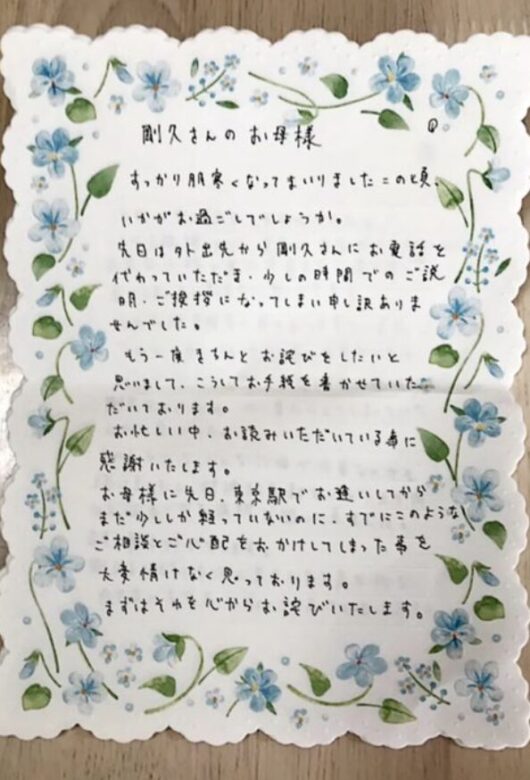 剛久さんのお母様
すっかり肌寒くなってまいりましたこの頃、
いかがお過ごしでしょうか。
先日は外出先から剛久さんにお電話を
代わっていただき、少しの時間でのご説
明、ご挨拶になってしまい申し訳ありま
せんでした。
もう一度きちんとお詫びをしたいと
思いまして、こうしてお手紙を書かせていた
だいております。
お忙しい中、お読みいただいている事に
感謝いたします。
お母様に先日、東京駅でお逢いしてから
まだ少ししか経っていないのに、すでにこのような
ご相談とご心配をおかけしてしまった事を
大変情けなく思っております。
まずはそれを心からお詫びいたします。